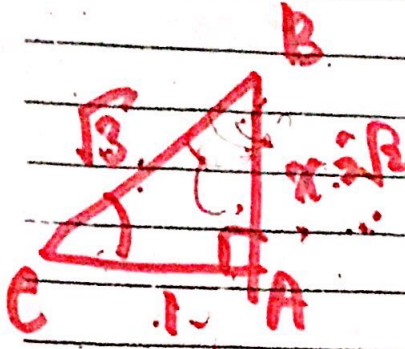 B
√3
x = √2
C
1
A